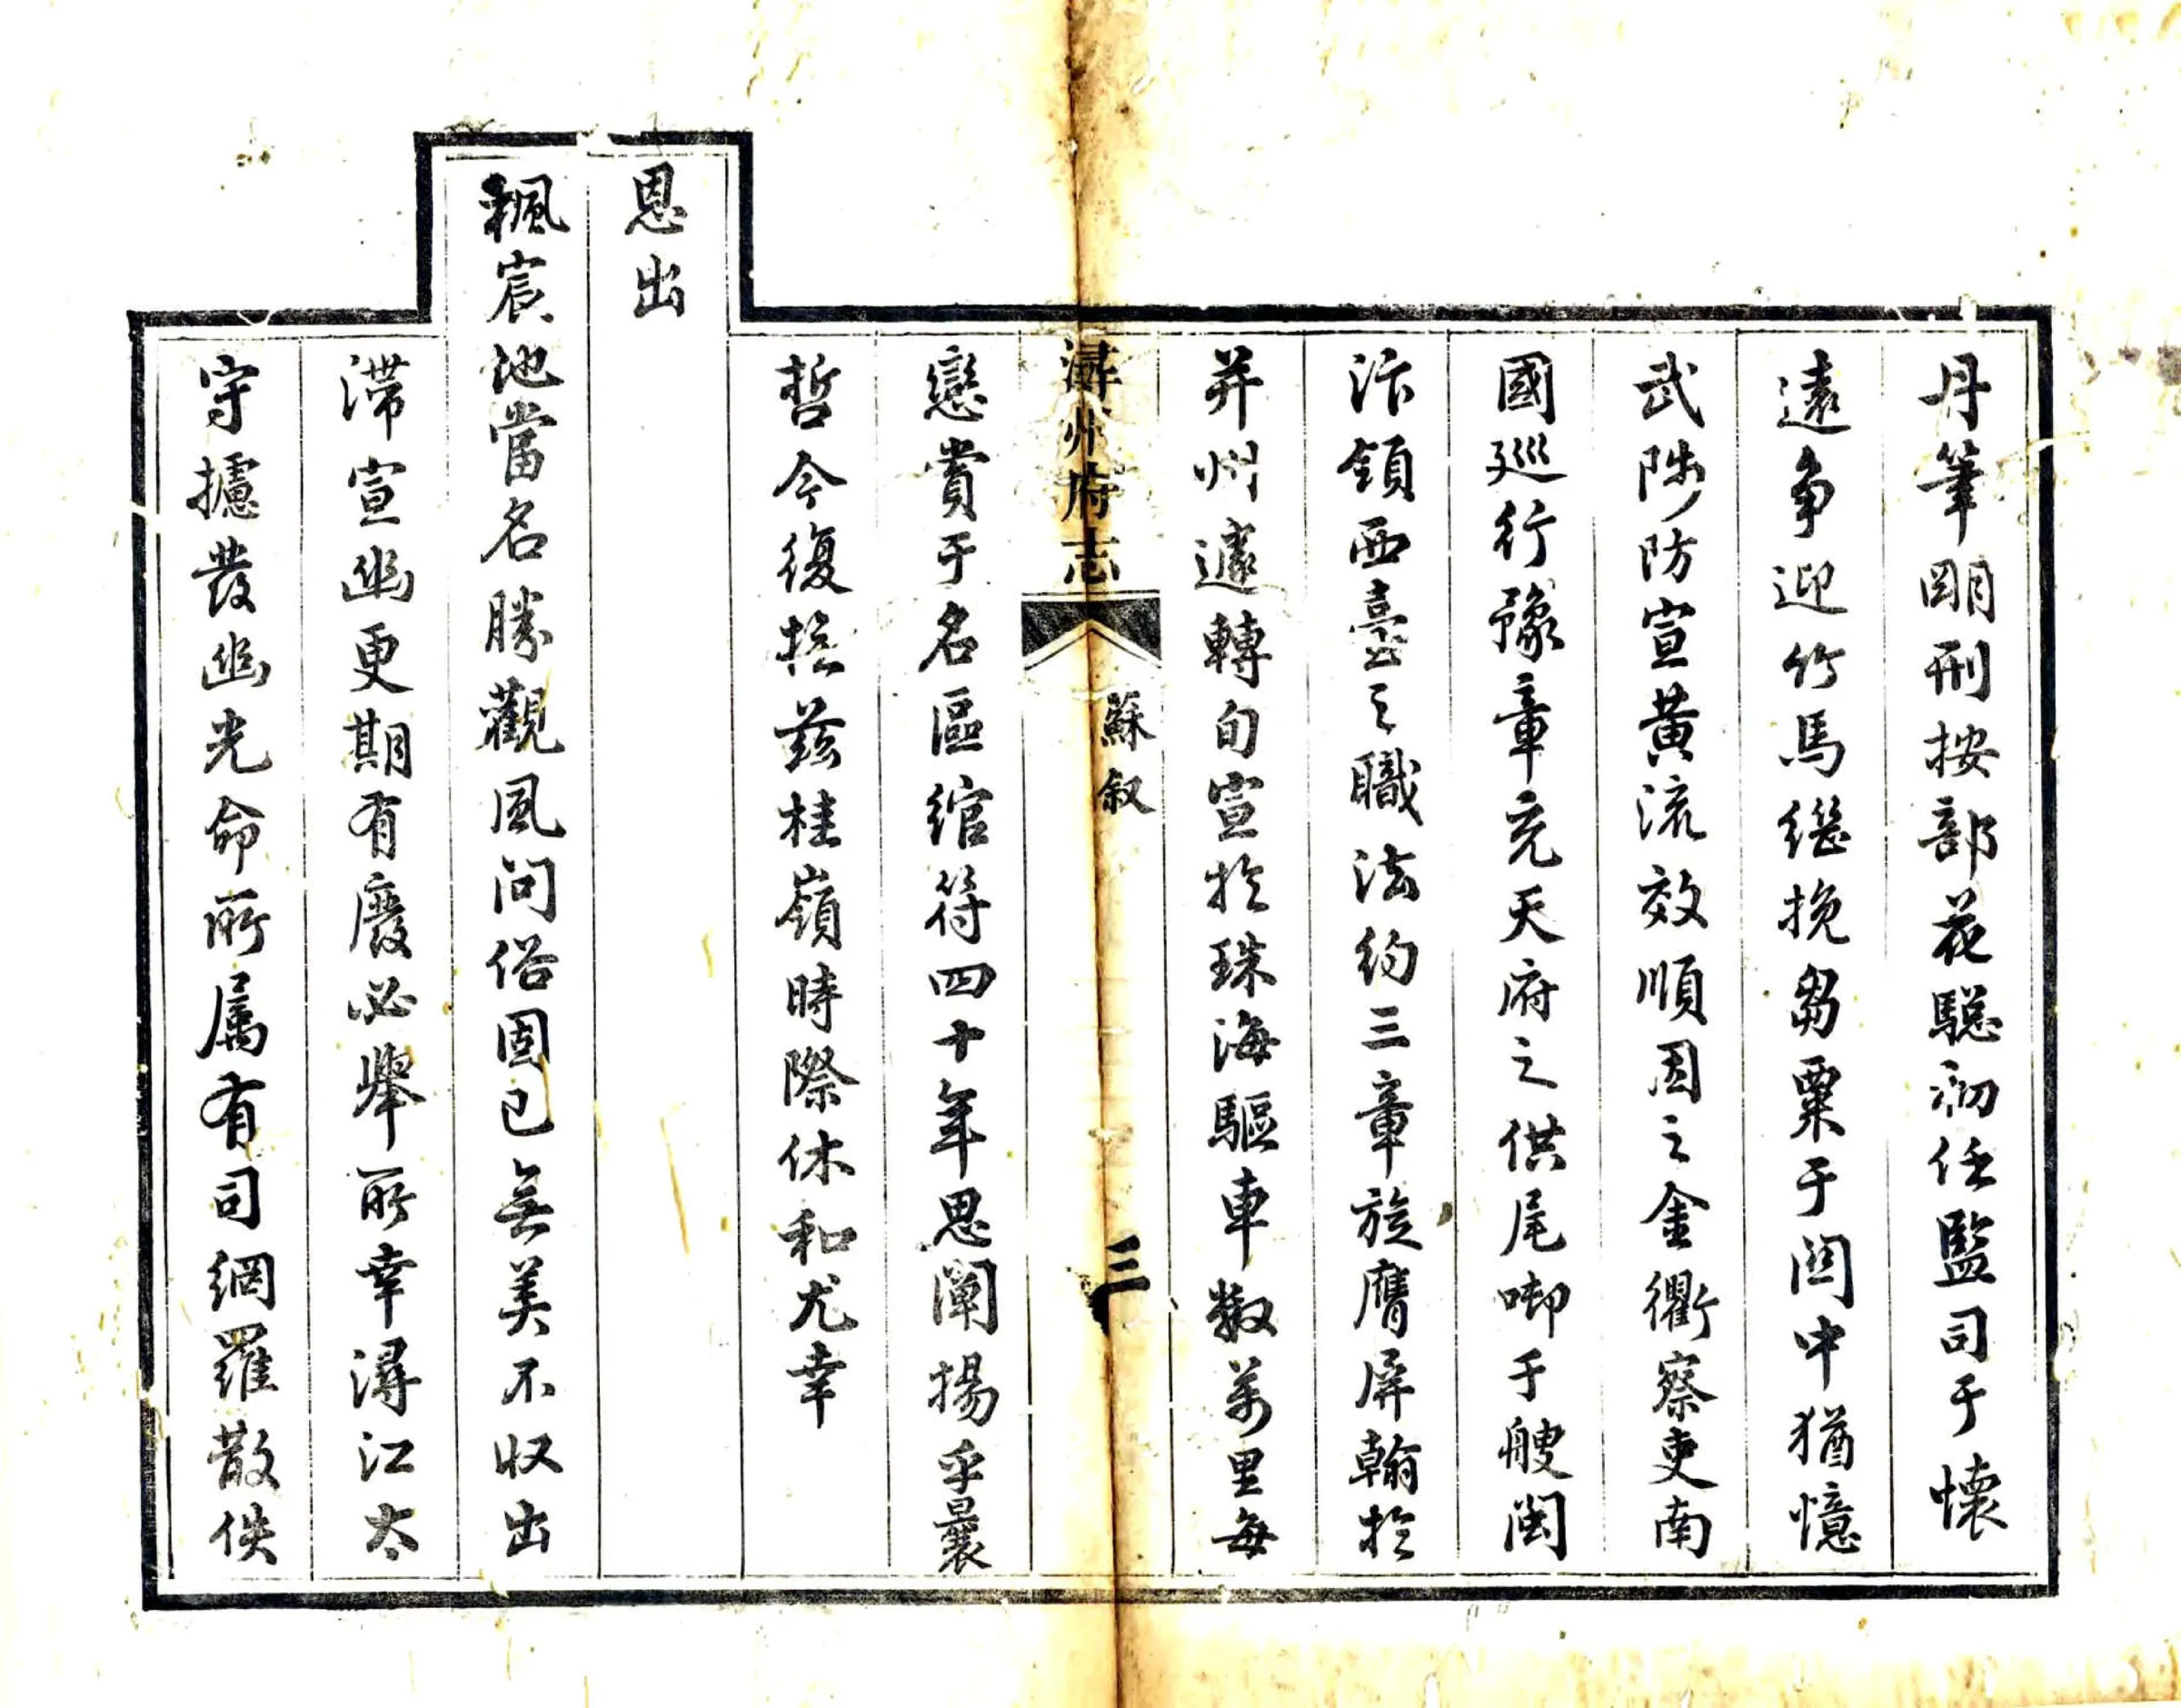 丹筆明刑按部花驄初任監司于懷
遠爭迎竹馬繼挽芻粟于関中猶憶
武陟防宣黄流效順固之金衢察吏南
國廵行豫章充天府之供尾啣手艘閩
汴領西臺之職法約三章旋膺屏翰扵
并州遽轉旬宣扵珠海驅車数萬里每
潯州府志
蘇叙
三
戀賞于名區綰符四十年思闡揚乎曩
哲今復撫茲桂嶺時際休和尤幸
恩出
楓宸地當名勝觀風问俗固已無美不収出
滯宣幽更期有廢必舉所幸潯江太
守攄發幽光命所属有司網羅散佚